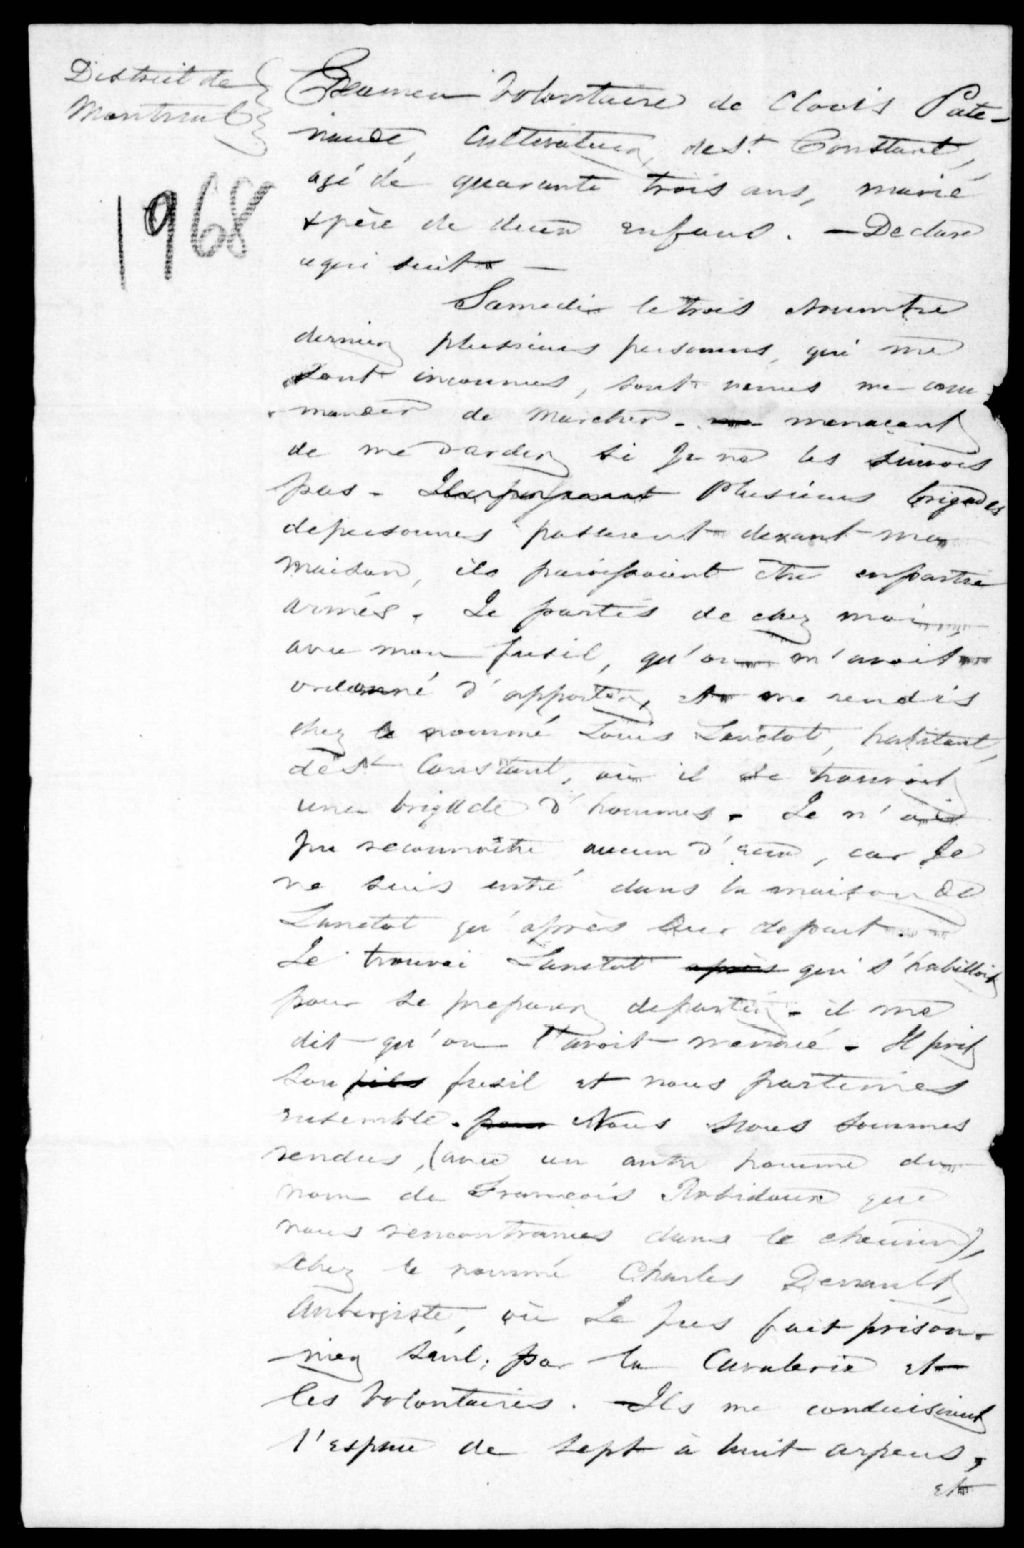 District de
Montreal
1968
Examen Volontaire de Clovis Pate-
naude, Cultivateur, de St. Constant,
agé de quarante trois ans, marié
& père de deux enfans. — Declare
ce qui suit —
Samedi le trois Novembre
dernier plusieurs personnes, qui me
sont inconnues, sont venues me com
mander de marcher - menaçant
de me darder si je ne les suivois
pas - Plusieurs brigades
de personnes passerent devant ma
maison, ils paroissoient être en partie
armés. Je partis de chez moi,
avec mon fusil, qu'on m'avoit
ordonné d'apporter, et me rendis
chez le nommé Louis Lanctot, habitant,
de St Constant, où il se trouvoit
une brigade d'hommes. Je n'ai
pu reconnoître aucun d'eux, car je
ne suis entré dans la maison de
Lanctot qu'après leur depart.
Je trouvai Lanctot après qui s'habilloit
pour se preparer de partir - il me
dit qu'on l'avoit menacé. Il prit
son fils fusil et nous partimes
ensemble. pour Nous nous sommes
rendus, (avec un autre homme du
nom de François Robidoux que
nous rencontrames dans le chemin),
chez le nommé Charles Derault,
Aubergiste, où je fus fait prison-
nier seul, par la Cavalerie et
les Volontaires. Ils me conduisirent
l'espace de sept à huit arpens,
et